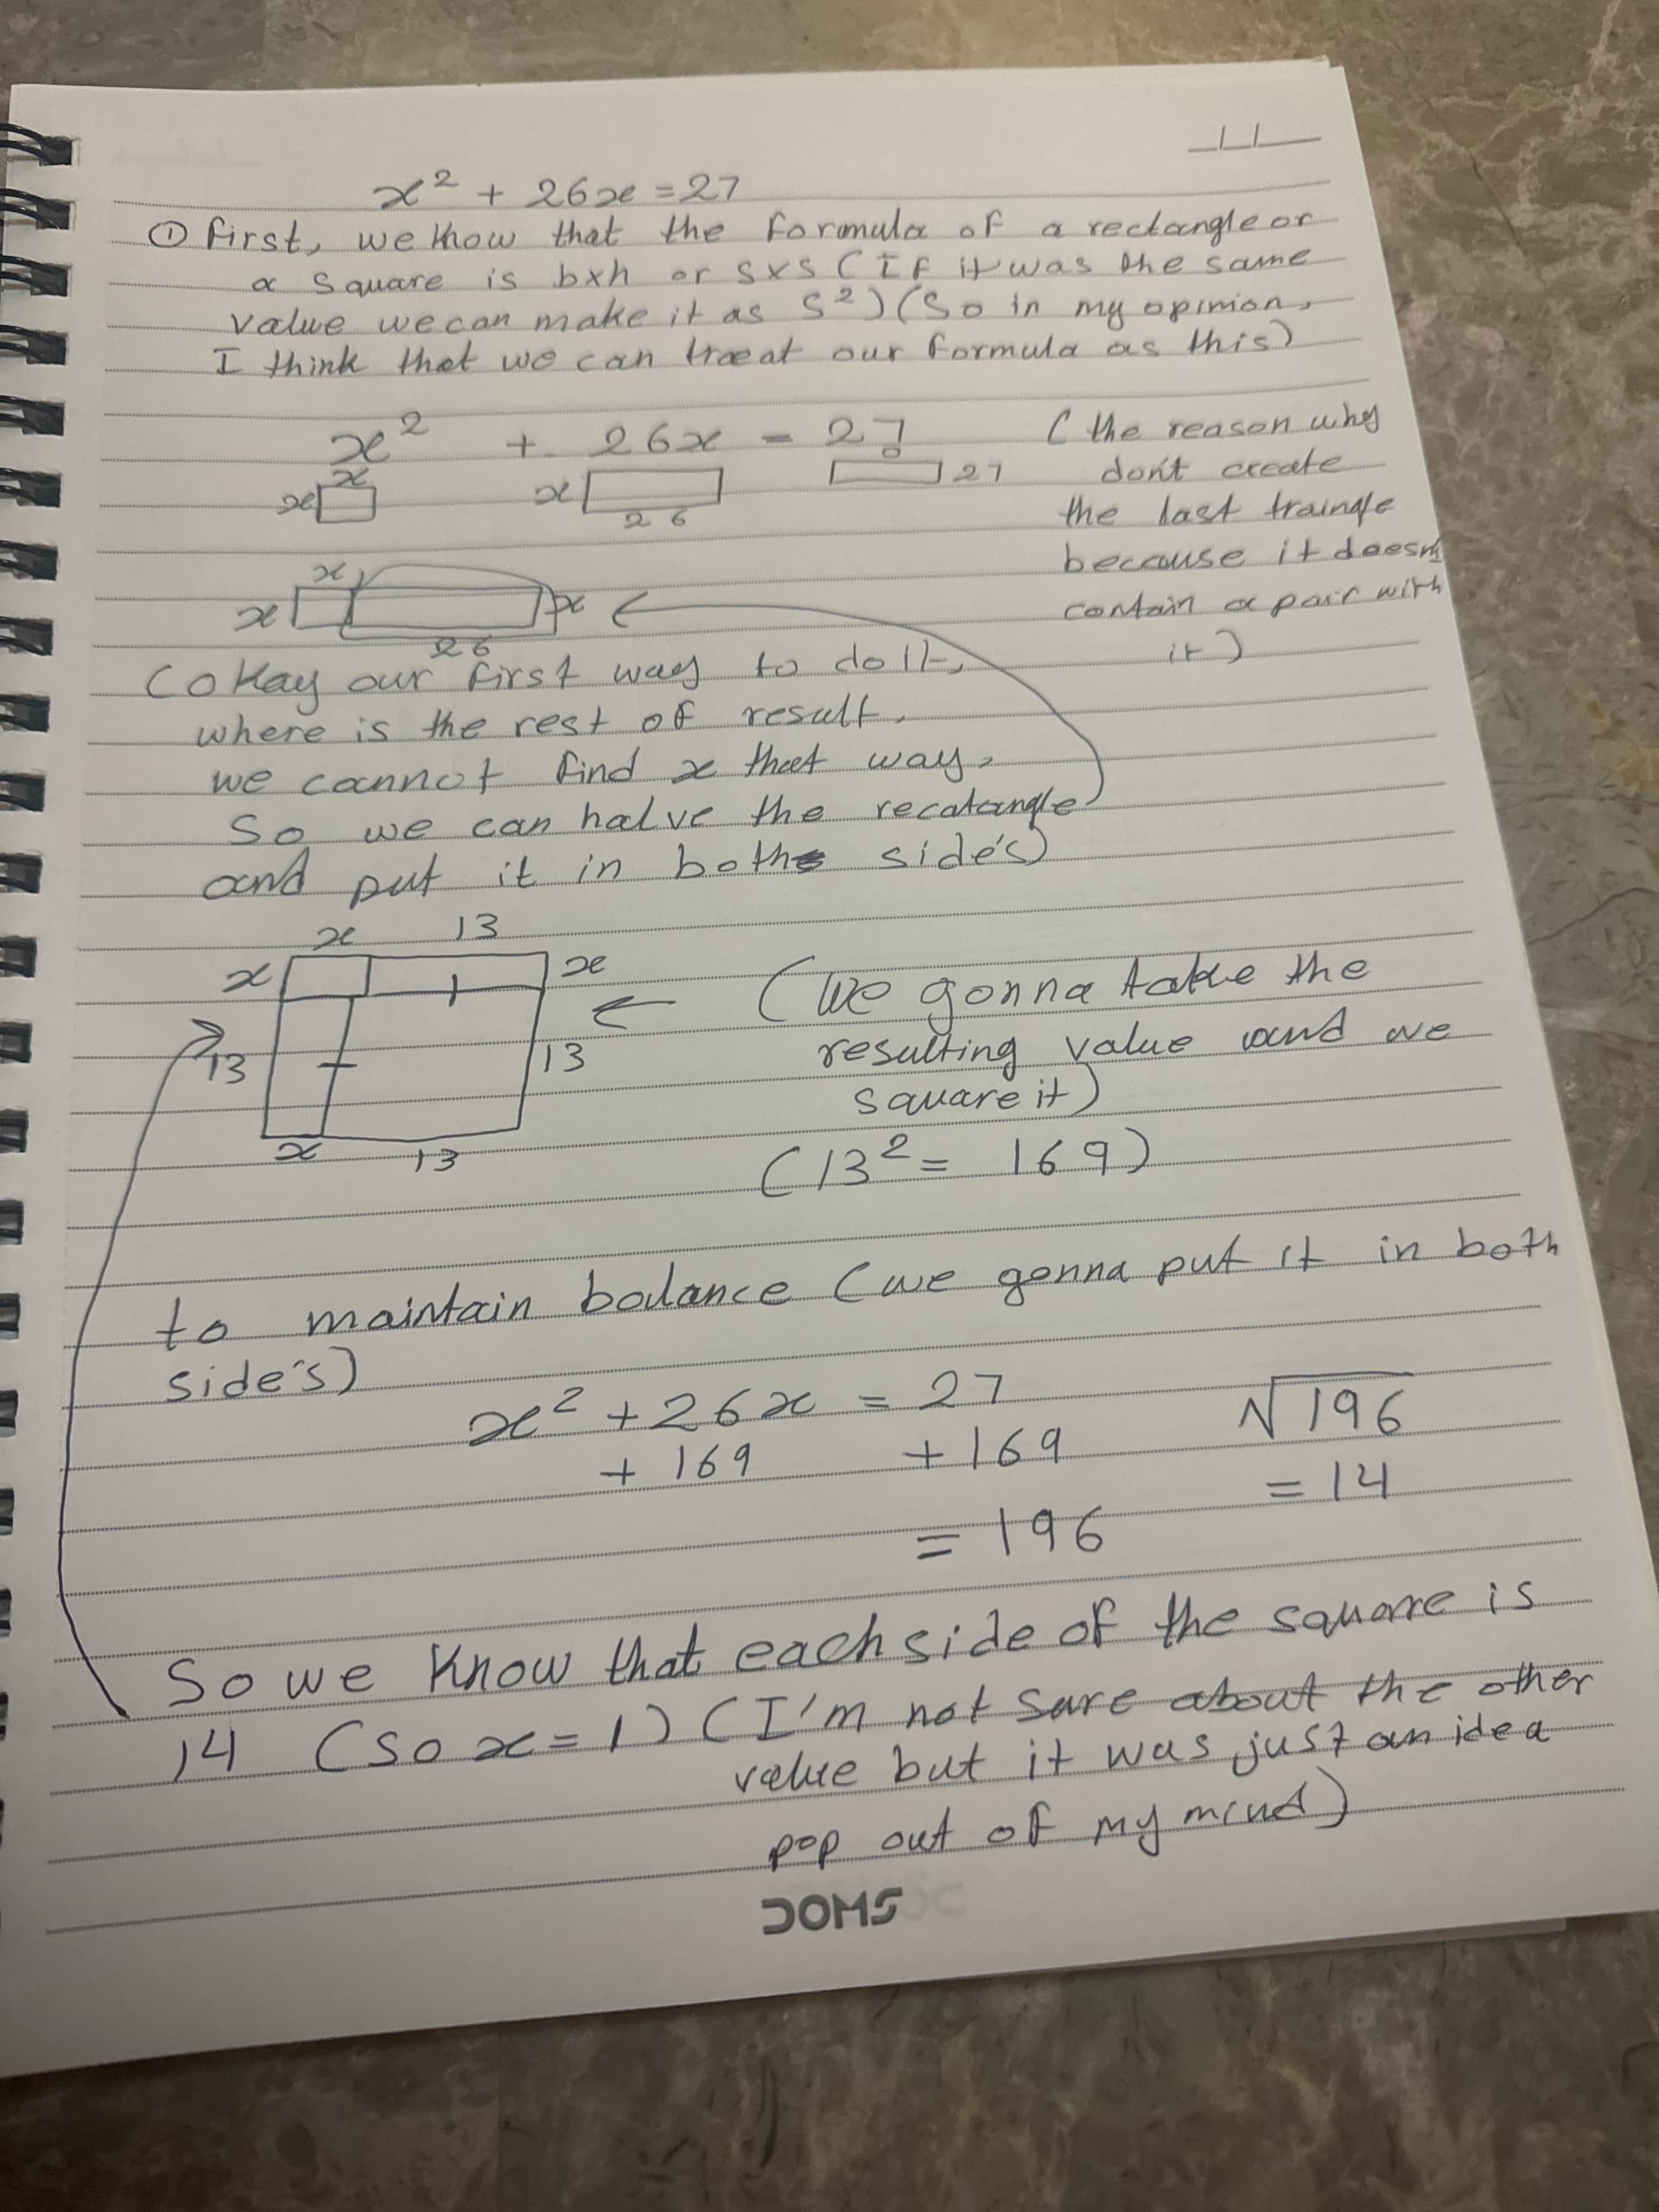 x² + 26x = 27
① first, we know that the formula of a rectangle or
a square is b×h or s×s (If it was the same
value we can make it as s²) (So in my opinion,
I think that we can treat our formula as this)
x² + 26x = 27
x
x
x
26
27
(the reason why
don't create
the last traingle
because it doesn't
contain a pair with
it)
x
x
x
26
(Okay our first way to do it,
where is the rest of result.
we cannot find x that way,
So we can halve the recatangle
and put it in both side's)
x 13
x
x
13
13
x 13
(We gonna take the
resulting value and we
square it)
(13² = 169)
to maintain balance (we gonna put it in both
side's)
x² + 26x = 27
+ 169 + 169
= 196
√196
= 14
So we know that each side of the square is
14 (so x = 1) (I'm not sure about the other
value but it was just an idea
pop out of my mind)
DOMS